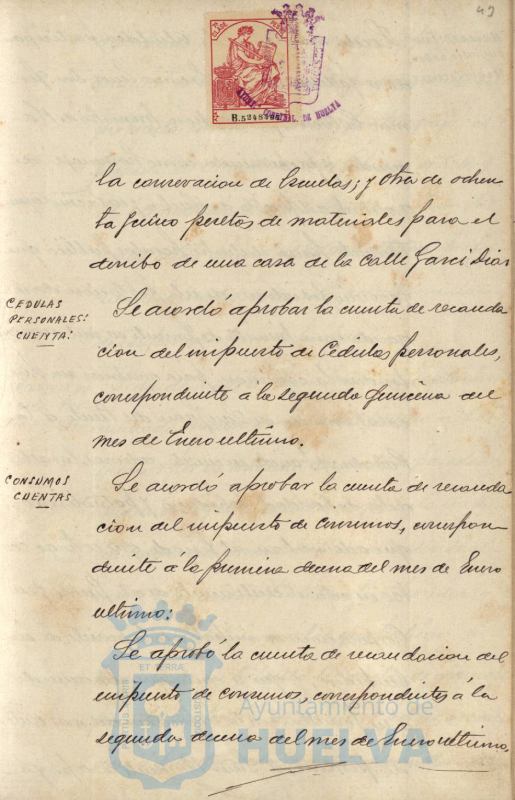 49
CLASE
R.5248486
AYUNT. CONSTNAL. DE HUELVA
la conservacion de Escuelas; y otra de ochen
ta y cinco pesetas de materiales para el
derribo de una casa de la calle Garci Diaz
CEDULAS
PERSONALES:
CUENTA:
Se acordó aprobar la cuenta de recauda
cion del impuesto de Cédulas personales,
correspondiente á la segunda quincena del
mes de Enero ultimo.
CONSUMOS
CUENTAS
Se acordó aprobar la cuenta de recauda
cion del impuesto de consumos, correspon
diente á la primera decena del mes de Enero
ultimo:
Se aprobó la cuenta de recaudacion del
impuesto de consumos, correspondiente á la
segunda decena del mes de Enero ultimo.
ET TERRAE
Ayuntamiento de
HUELVA